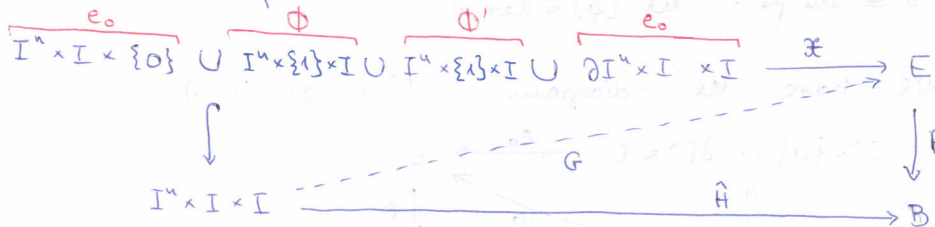 e₀ Φ Φ' e₀
Iⁿ × I × {0} ∪ Iⁿ × {1} × I ∪ Iⁿ × {1} × I ∪ ∂Iⁿ × I × I → E
G
Iⁿ × I × I Ĥ → B